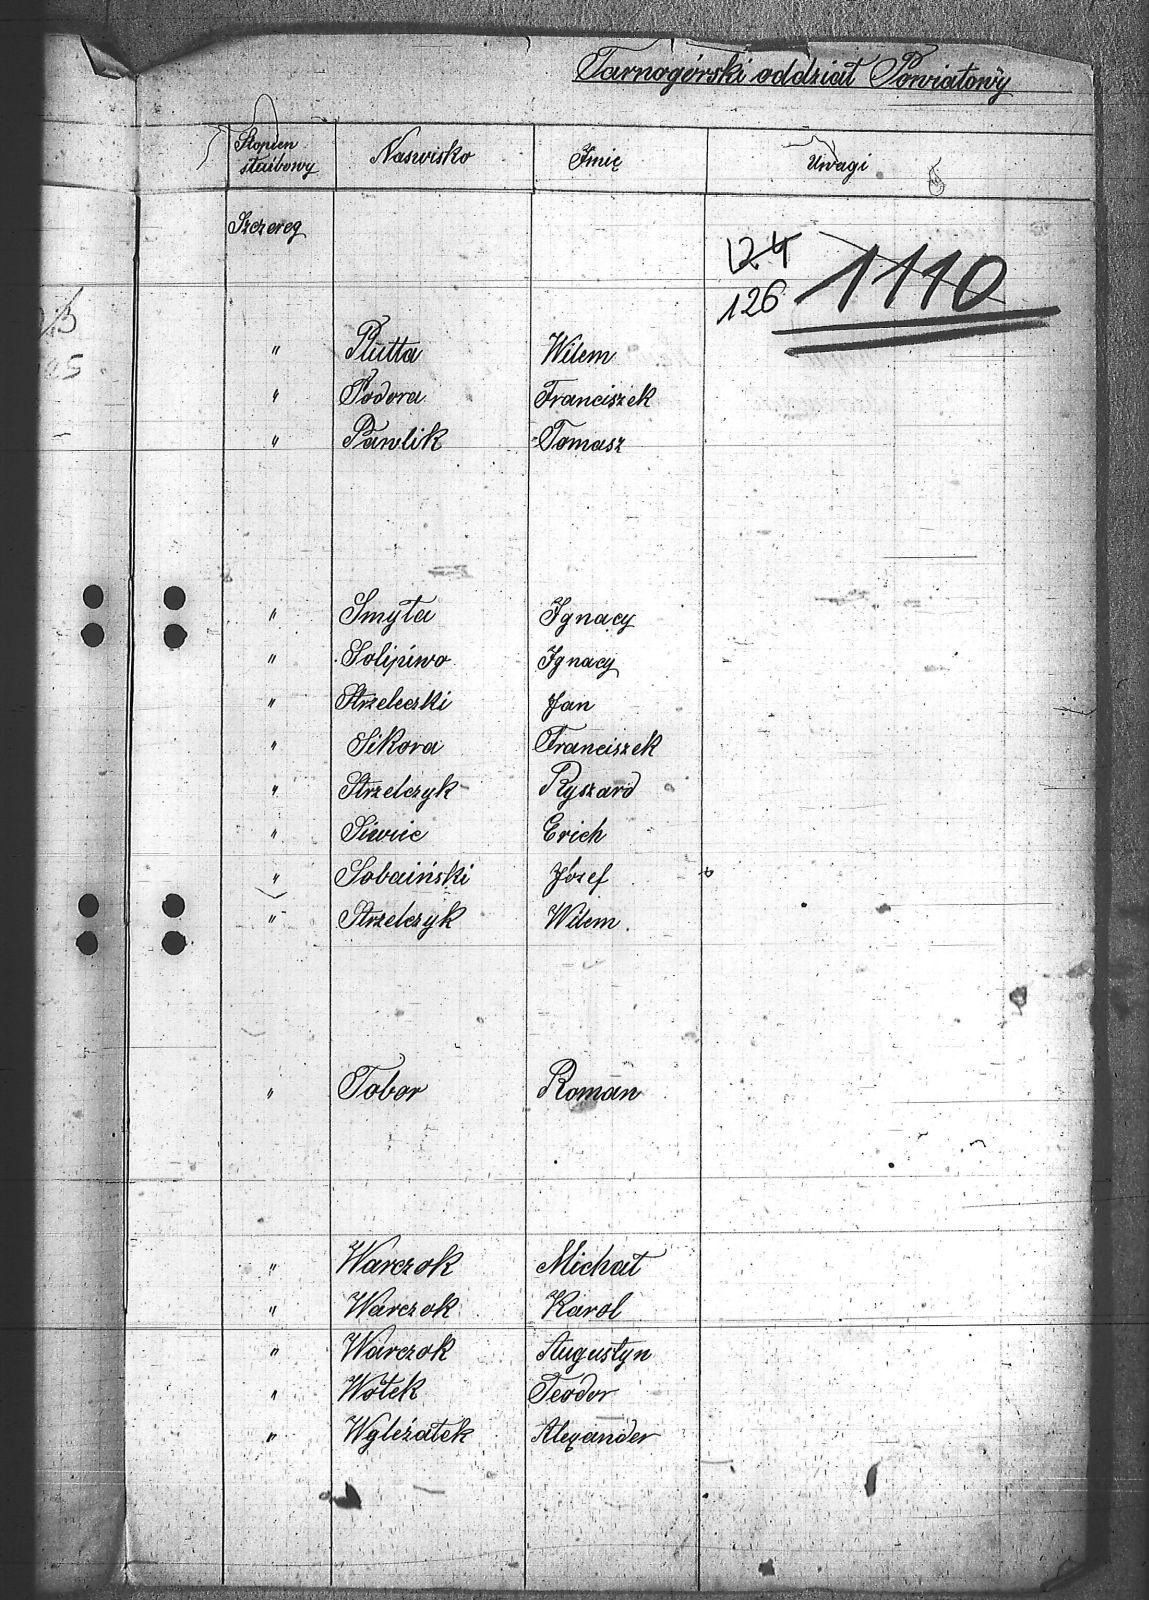 Tarnogórski oddział Powiatowy
Stopien służbowy Naswisko Imię Uwagi
Szereg
124
126 1110
" Plutta Wilem
" Podora Franciszek
" Pawlik Tomasz
" Smyła Ignacy
" Solipiwo Ignacy
" Strzelecki Jan
" Sikora Franciszek
" Strzelczyk Ryszard
" Siwiec Erich
" Sobaiński Józef
" Strzelczyk Wilem.
" Tobor Roman
" Warczok Michał
" Warczok Karol
" Warczok Augustyn
" Wołek Teodor
" Wyleżałek Alexander